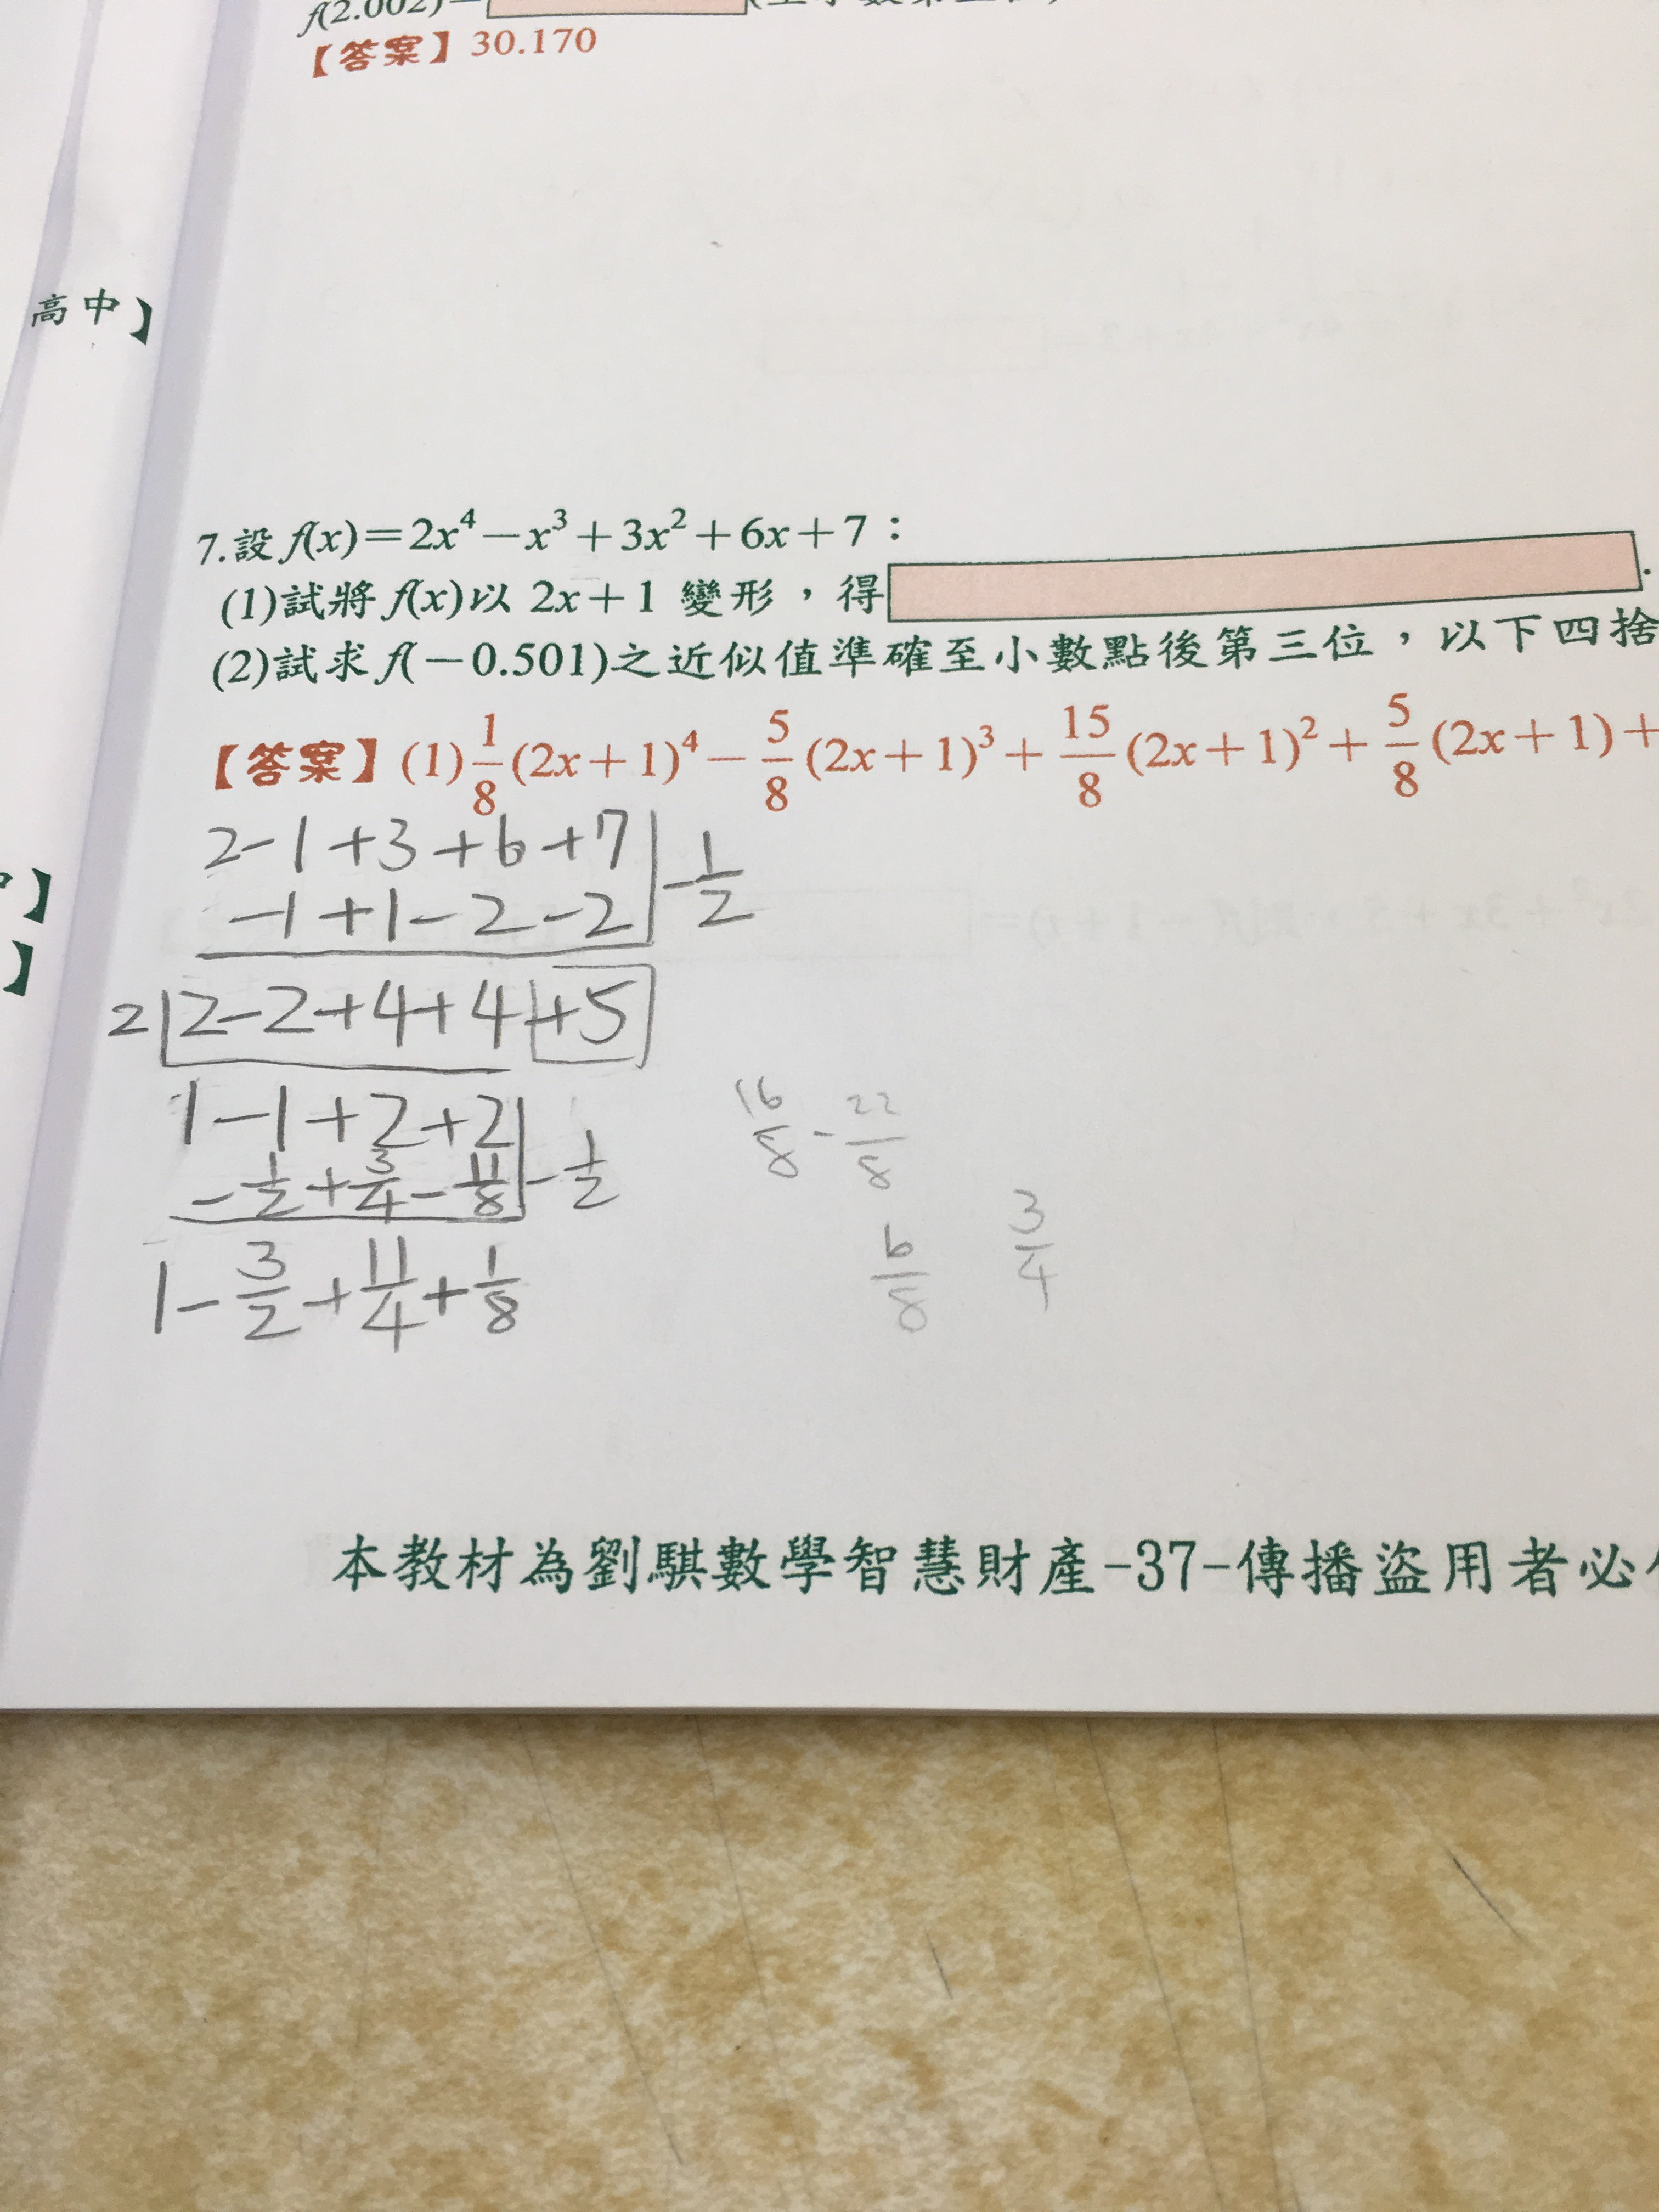 f(2.002)=
【答案】30.170
高中】
7.設 f(x)=2x⁴-x³+3x²+6x+7：
(1)試將 f(x)以 2x+1 變形，得 .
(2)試求 f(-0.501)之近似值準確至小數點後第三位，以下四捨
【答案】(1) 1/8 (2x+1)⁴ - 5/8 (2x+1)³ + 15/8 (2x+1)² + 5/8 (2x+1)+
2-1+3+6+7 | -1/2
-1+1-2-2
2|2-2+4+4|+5
1-1+2+2 | -1/2
-1/2+3/4-11/8
1-3/2+11/4+1/8
16/8-22/8
6/8 3/4
】
】
本教材為劉騏數學智慧財產-37-傳播盜用者必